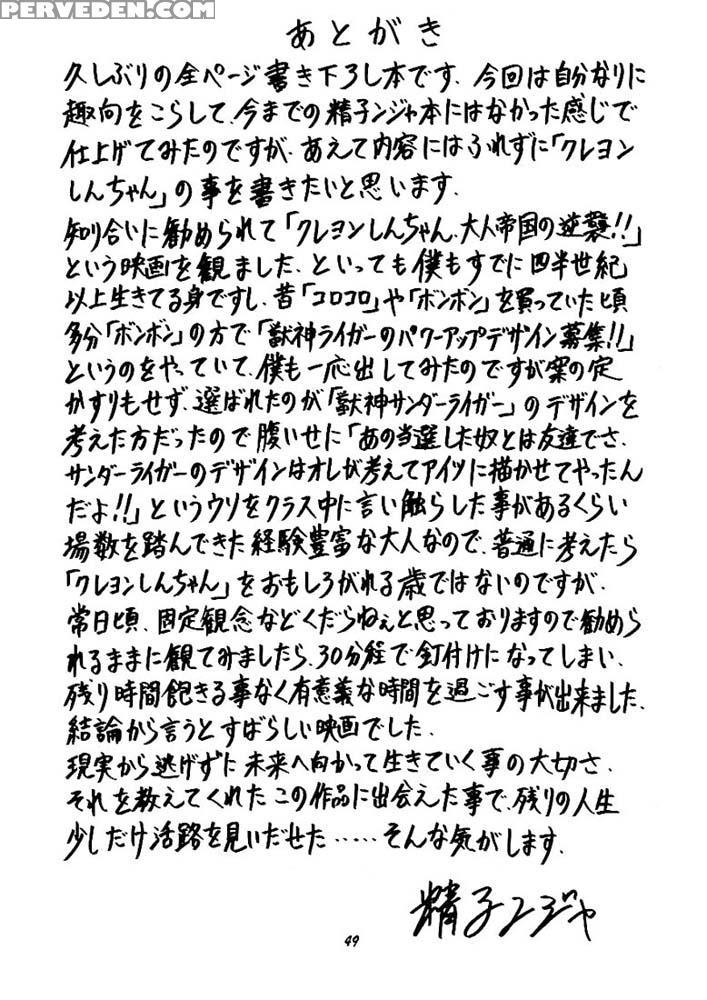 PERVEDEN.COM
あとがき
久しぶりの全ページ書き下ろし本です。今回は自分なりに
趣向をこらして、今までの精子ンジャ本にはなかった感じで
仕上げてみたのですが、あえて内容にはふれずに「クレヨン
しんちゃん」の事を書きたいと思います。
知り合いに勧められて「クレヨンしんちゃん、大人帝国の逆襲!!」
という映画を観ました、といっても僕もすでに四半世紀
以上生きてる身ですし、昔「コロコロ」や「ボンボン」を買っていた頃
多分「ボンボン」の方で「獣神ライガーのパワーアップデザイン募集!!」
というのをやっていて、僕も一応出してみたのですが案の定
かすりもせず、選ばれたのが「獣神サンダーライガー」のデザインを
考えた方だったので腹いせに「あの当選した奴とは友達でさ、
サンダーライガーのデザインはオレが考えてアイツに描かせてやったん
だよ!!」というウソをクラス中に言い触らした事があるくらい
場数を踏んできた経験豊富な大人なので、普通に考えたら
「クレヨンしんちゃん」をおもしろがれる歳ではないのですが、
常日頃、固定観念などくだらねぇと思っておりますので勧めら
れるままに観てみましたら、30分程で釘付けになってしまい、
残り時間飽きる事なく有意義な時間を過ごす事が出来ました。
結論から言うとすばらしい映画でした。
現実から逃げずに未来へ向かって生きていく事の大切さ、
それを教えてくれたこの作品に出会えた事で、残りの人生
少しだけ活路を見いだせた‥‥‥そんな気がします。
精子ンジャ
49